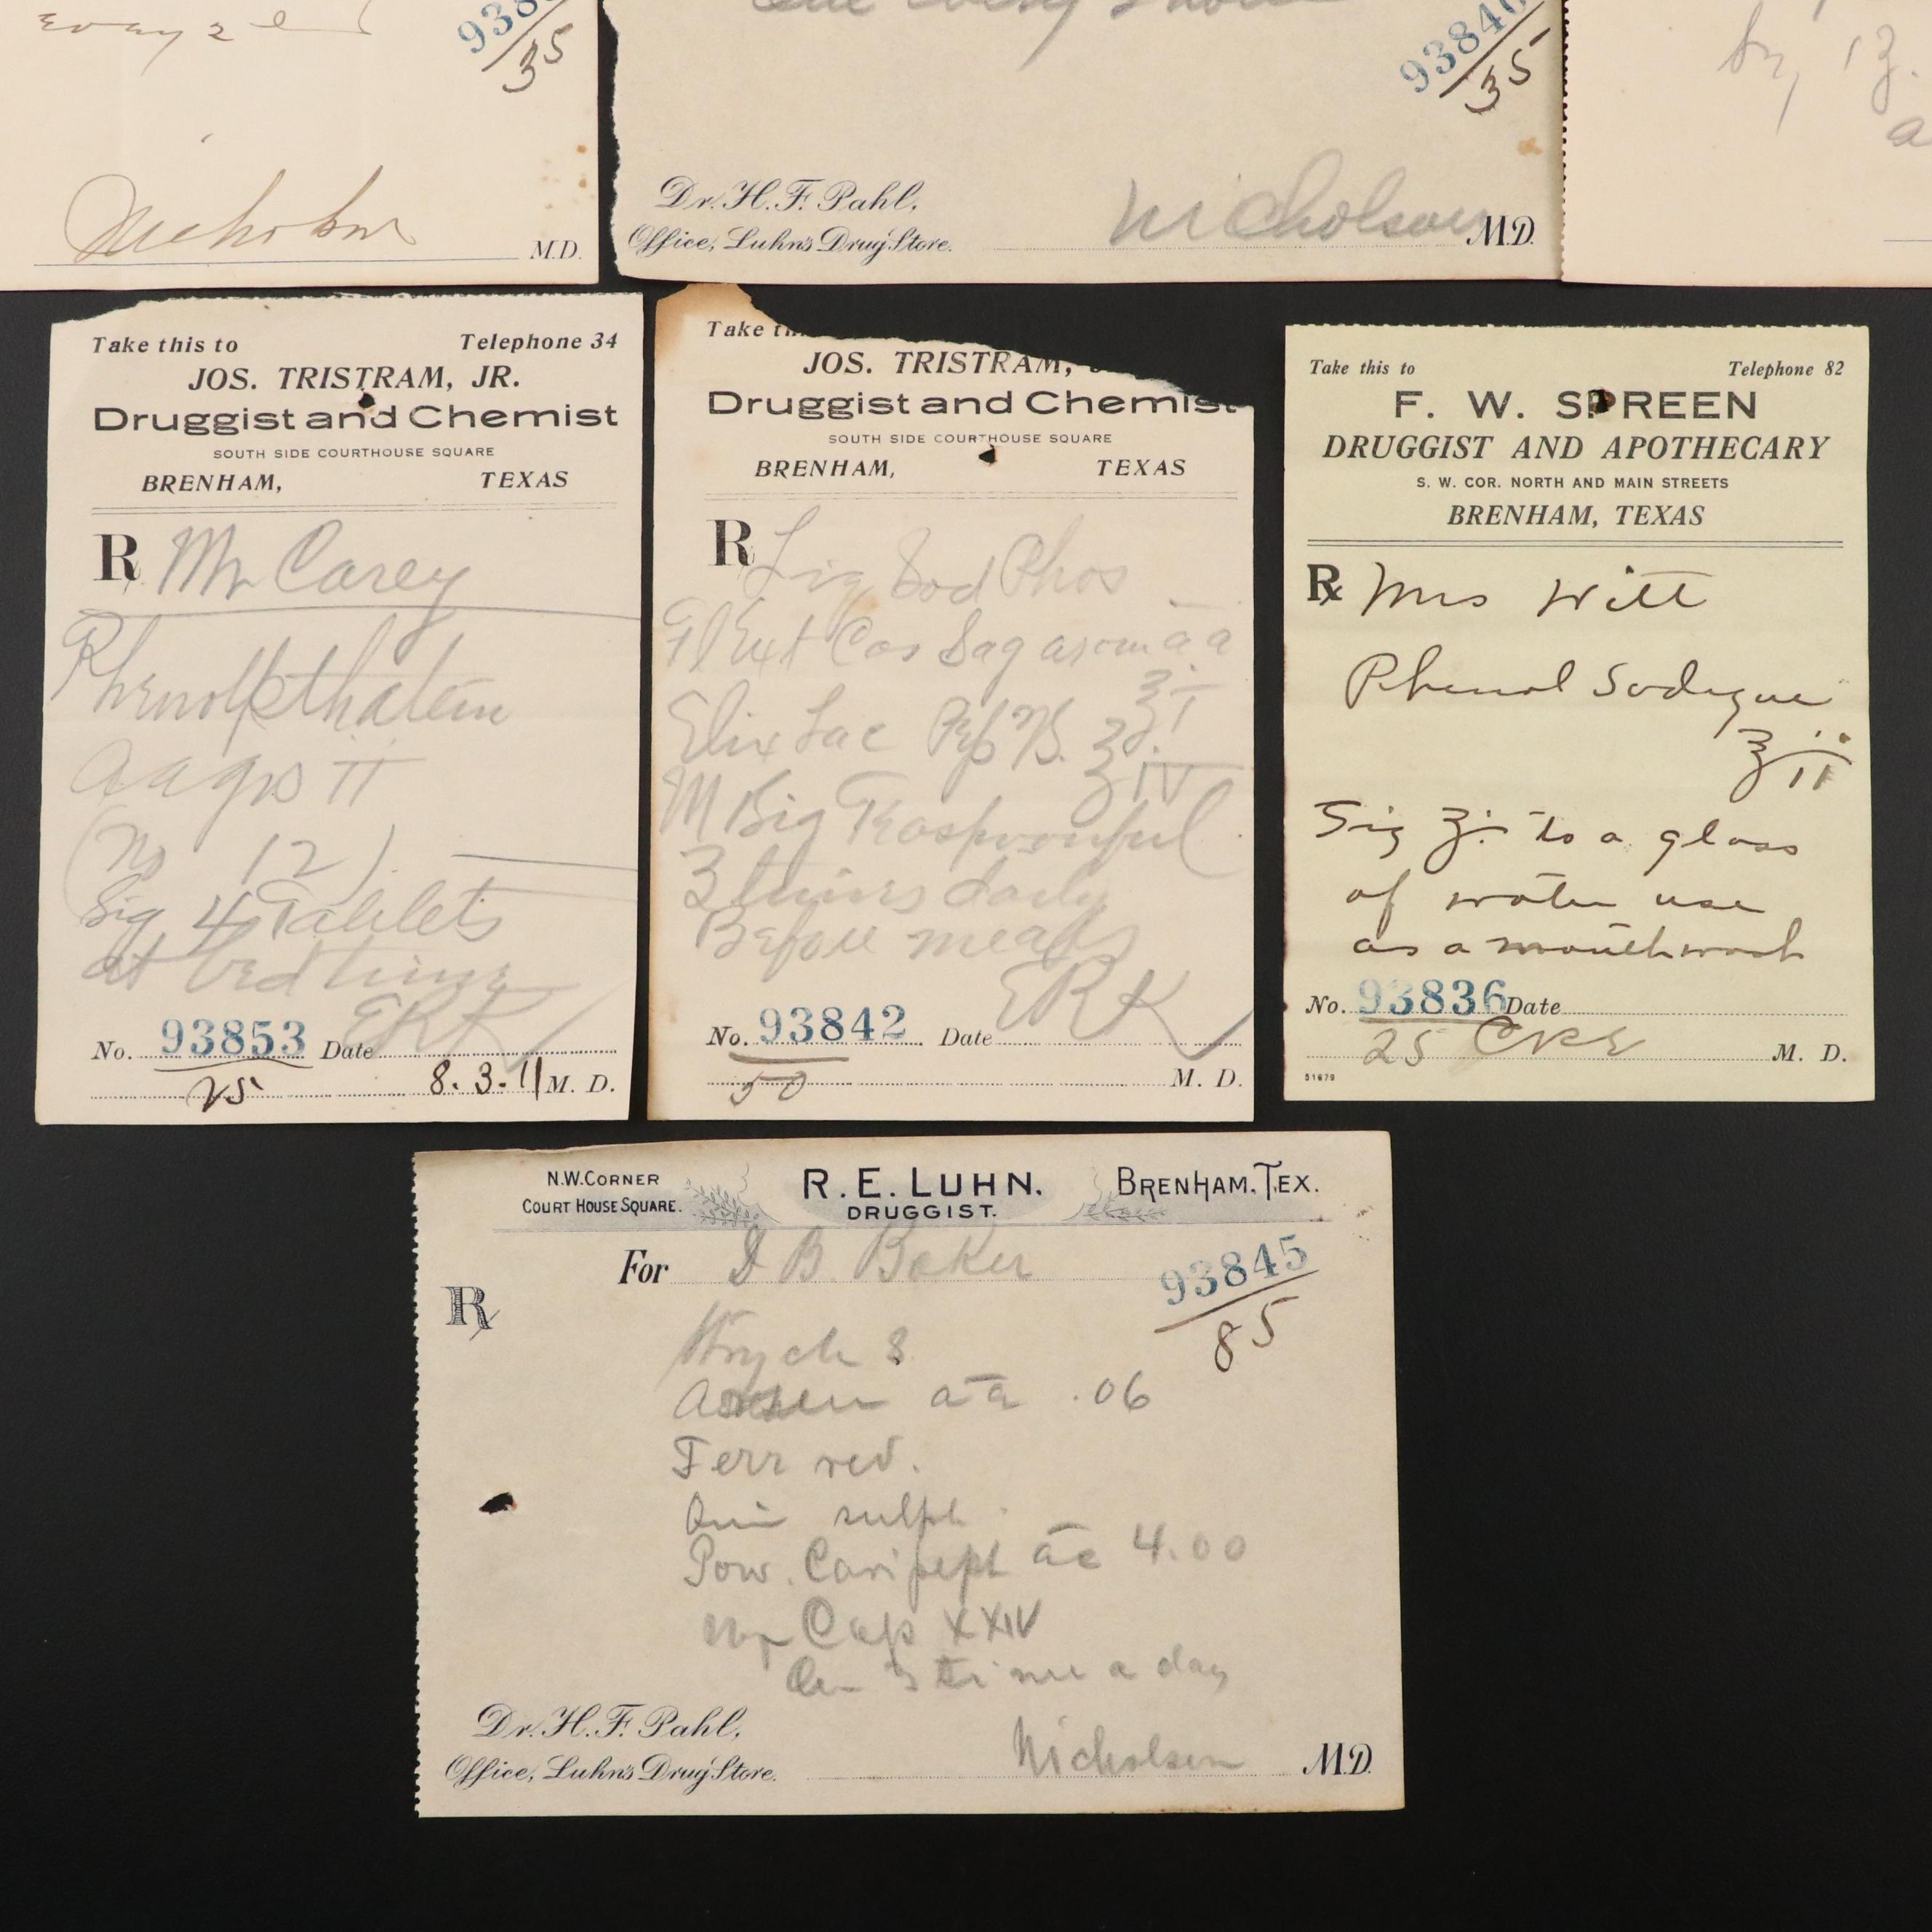 every 2
35
Nicholson
M.D.
one every 3 hours
93840
35
Dr. H. F. Pahl,
Office, Luhn's Drug Store.
Nicholson M.D.
Take this to Telephone 34
JOS. TRISTRAM, JR.
Druggist and Chemist
SOUTH SIDE COURTHOUSE SQUARE
BRENHAM, TEXAS
R Mr Carey
Phenolpthalein
aa grs II
(No 12)
Sig 4 Tablets
at bed time
ERK
No. 93853 Date
25 8.3.11 M. D.
Take
JOS. TRISTRAM,
Druggist and Chemist
SOUTH SIDE COURTHOUSE SQUARE
BRENHAM, TEXAS
R Liq Sod Phos
Fl Ext Cas Sag arom aa
ʒ I
Elix Lac Pep
ʒ IV
M Sig Teaspoonful
3 times daily
Before meals
ERK
No. 93842 Date
50 M. D.
Take this to Telephone 82
F. W. SPREEN
DRUGGIST AND APOTHECARY
S. W. COR. NORTH AND MAIN STREETS
BRENHAM, TEXAS
Rx Mrs Witt
Phenol Sodique
ʒ ii
Sig ʒi to a glass
of water use
as a mouth wash
No. 93836 Date
25 M. D.
51679
N.W. CORNER
COURT HOUSE SQUARE.
R. E. LUHN.
DRUGGIST.
BRENHAM, TEX.
For B. Baker
93845
85
Rx
Strych
aa .06
Ferr red.
Quin sulph
Pow. Caripept aa 4.00
Cap XXIV
3 time a day
Dr. H. F. Pahl,
Office, Luhn's Drug Store.
Nicholson M.D.